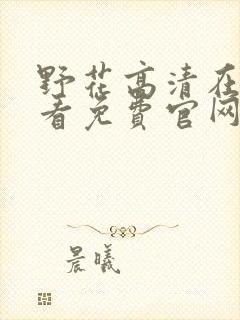 野花高清在
看免费官网
晨曦